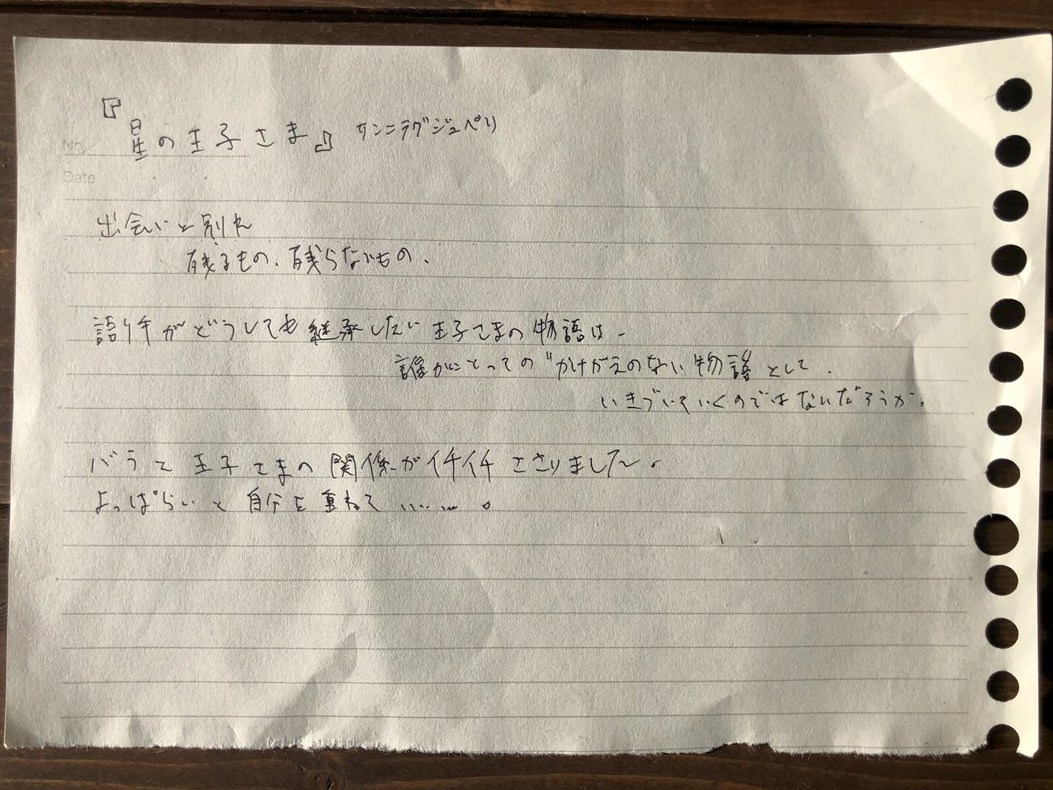 『星の王子さま』 サンテグジュペリ
No.
Date
出会いと別れ
残るもの、残らないもの、
語り手がどうしても継承したい王子さまの物語は、
誰かにとっての"かけがえのない物語として、
いきづいていくのではないだろうか。
バラと王子さまの関係がイチイチささりました〜。
よっぱらいと自分を重ねて……。